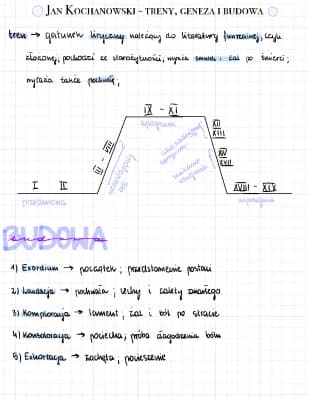 JAN KOCHANOWSKI – TRENY, GENEZA I BUDOWA
tren → gatunek liryczny należący do literatury funeralnej, czyli
żałobnej, pochodzi ze starożytności, wyraża smutek i żal po śmierci,
wyraża także pochwałę,
IX - XI
apogeum
XII
XIII
III - VIII
narastający
ból
XIV
XVII
I II
przedmowa
XVIII - XIX
BUDOWA
1) Exordium → początek, przedstawienie postaci
2) Laudacja → pochwała, cechy i zalety zmarłego
3) Komploracja → lament, żal i ból po stracie
4) Konsolacja → pociecha, próba złagodzenia bólu
5) Exhortacja → zachęta, pocieszenie